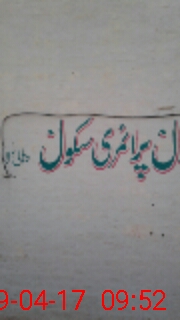 ل پرائمری سکول
9-04-17 09:52